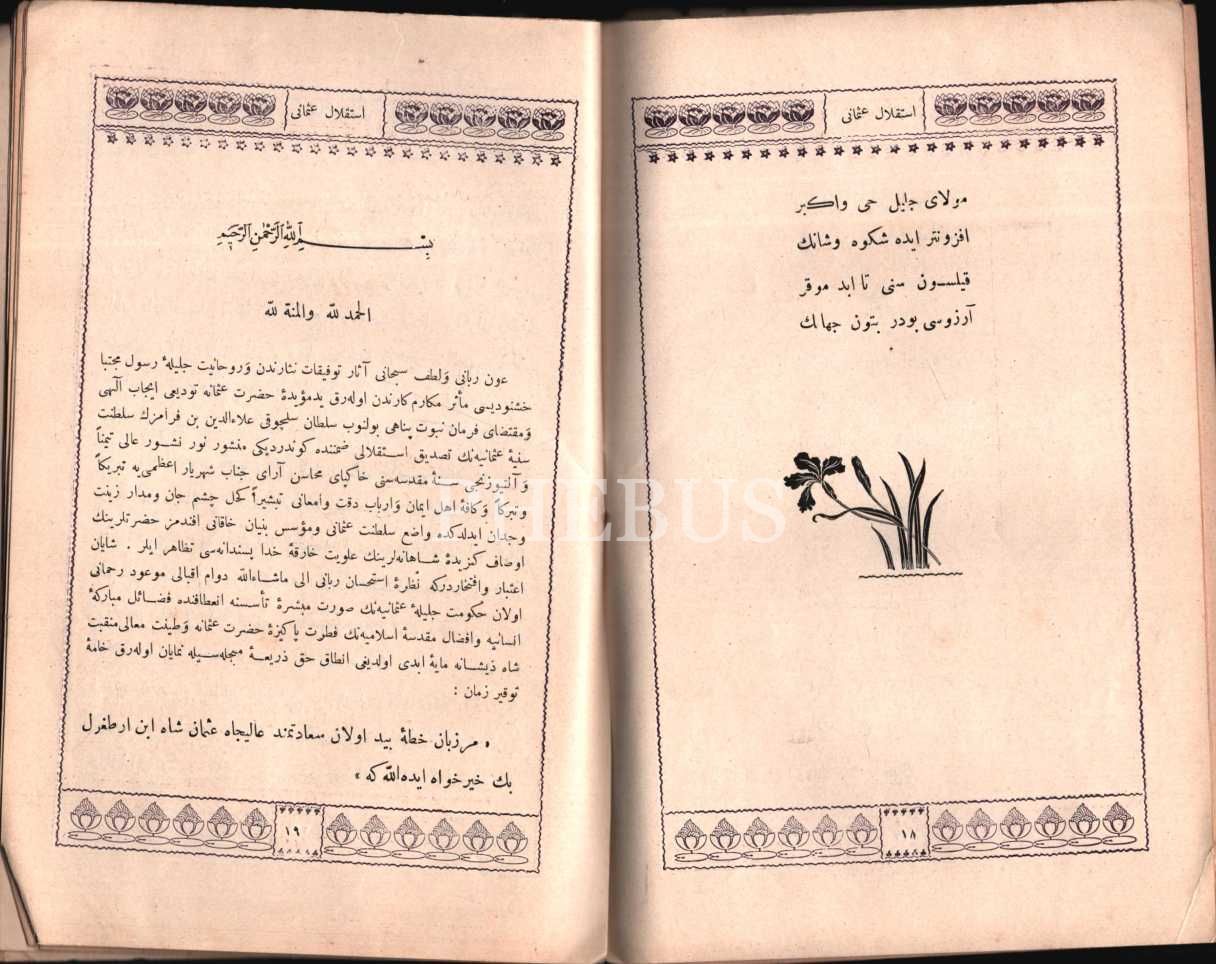 استقلال عثمانی
مولای جلیل حی واكبر
افزونتر ایده شكوه وشانك
قیلسون سنی تا ابد موقر
آرزوسی بودر بتون جهانك
١٨
استقلال عثمانی
بسم الله الرحمن الرحيم
الحمد لله والمنة لله
عون ربانی وَلطف سبحانی آثار توفیقات نثارندن وَروحانیت جلیلهٔ رسول مجتبا
خشنودیسی مأثر مكارم‌كارندن اوله‌رق یدمؤیدهٔ حضرت عثمانه تودیعی ایجاب آلهی
وَمقتضای فرمان نبوت پناهی بولنوب سلطان سلچوقی علاءالدین بن فرامرزك سلطنت
سنیهٔ عثمانیه‌نك تصدیق استقلالی ضمننده كوندردیكی منشور نور نشور عالی تیمناً
وَآلتیوزنجی سنهٔ مقدسه‌سنی خاكپای محاسن آرای جناب شهریار اعظمی‌یه تبریكاً
وتبركاً وَكافهٔ اهل ایمان وَارباب دقت وامعانی تبشیراً كحل چشم جان ومدار زینت
وجدان ایدلدكده واضع سلطنت عثمانی ومؤسس بنیان خاقانی افندمز حضرتلرینك
اوصاف كزیدهٔ شاهانه‌لرینك علویت خارقهٔ خدا پسندانه‌سی تظاهر ایلر . شایان
اعتبار وافتخاردركه نظرهٔ استحسان ربانی الی ماشاءالله دوام اقبالی موعود رحمانی
اولان حكومت جلیلهٔ عثمانیه‌نك صورت مبشرهٔ تأسسنه انعطافنده فضائل مباركهٔ
انسانیه وافضال مقدسهٔ اسلامیه‌نك فطرت پاكیزهٔ حضرت عثمانه وَطینت معالی‌منقبت
شاه ذیشانه مایهٔ ابدی اولدیغی انطاق حق ذریعهٔ مبجله‌سیله نمایان اوله‌رق خامهٔ
توقیر زمان :
« مرزبان خطهٔ بید اولان سعادتمند عالیجاه عثمان شاه ابن ارطغرل
بك خیرخواه ایده‌الله كه »
١٩
PHEBUS